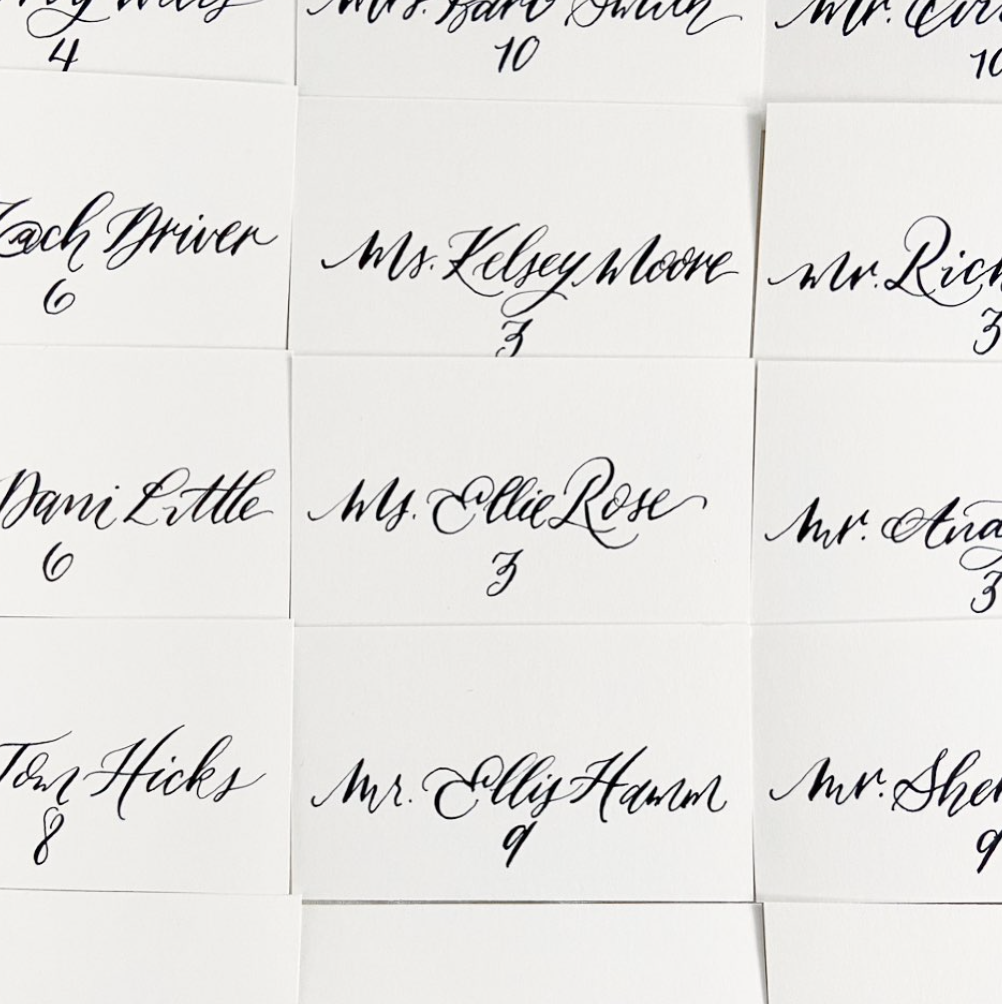 4
Mrs. Bart Smith
10
Mr.
10
Zach Driver
6
Ms. Kelsey Moore
3
Mr. Rich
3
Dani Little
6
Ms. Ellie Rose
3
Mr. And
3
Tom Hicks
8
Mr. Ellis Hamm
9
Mr. Sher
9